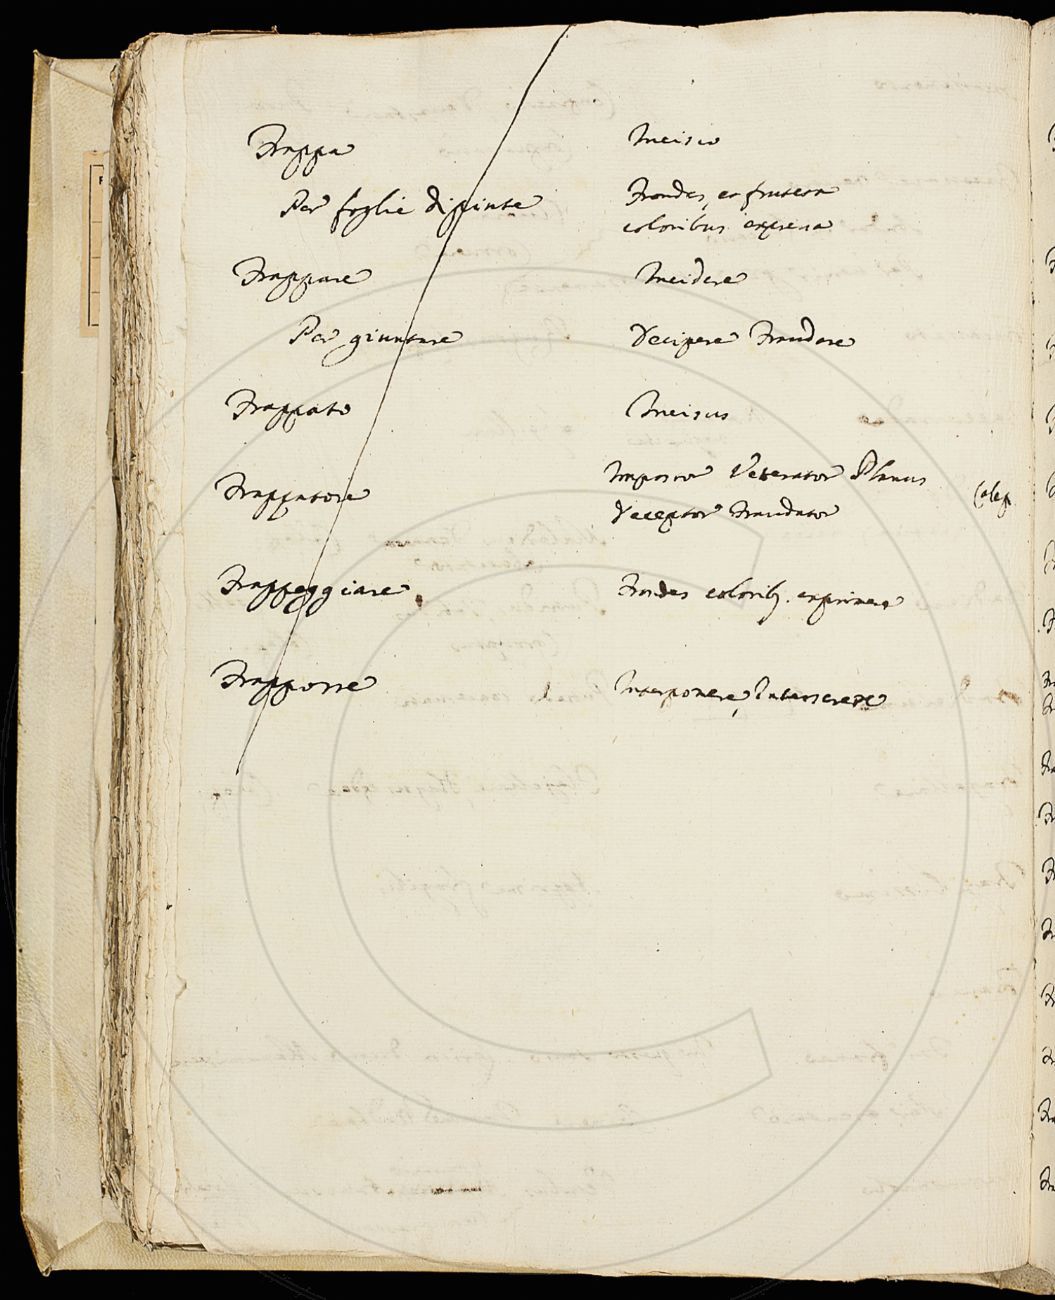 Frappa Incisio
Per foglie dipinte Frondes, et frutecta
coloribus expressa
Frappare Incidere
Per giuntare Decipere Fraudare
Frappato Incisus
Frappatore Impostor Veterator Planus
Deceptor Fraudator
Frappeggiare Frondes colorib. exprimere
Frapporre Interponere, Interserere